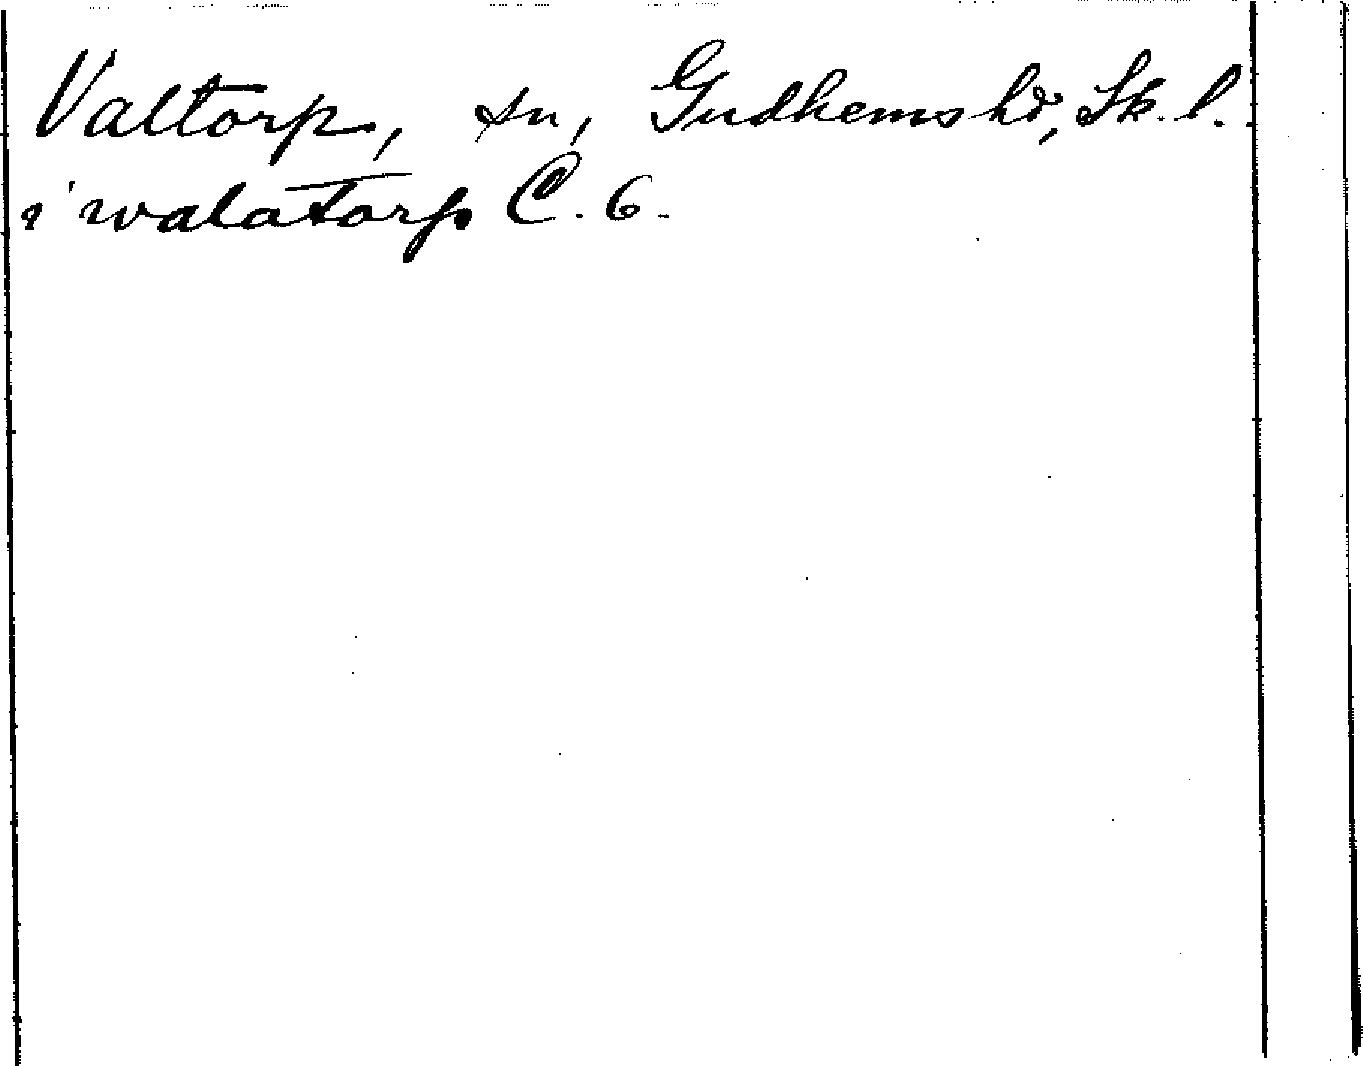 Valtorp, sn, Gudhems hd, Sk. l.
i walatorp C. 6.